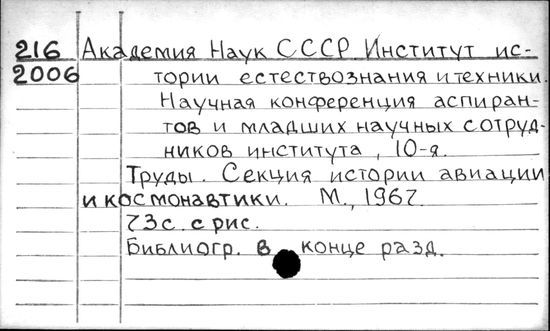 216 Академия Наук СССР. Институт ис-
2006 тории естествознания и техники.
Научная конференция аспиран-
тов и младших научных сотруд-
ников института, 10-я.
Труды. Секция истории авиации
и космонавтики. М., 1967.
73с. с рис.
Библиогр. в конце разд.